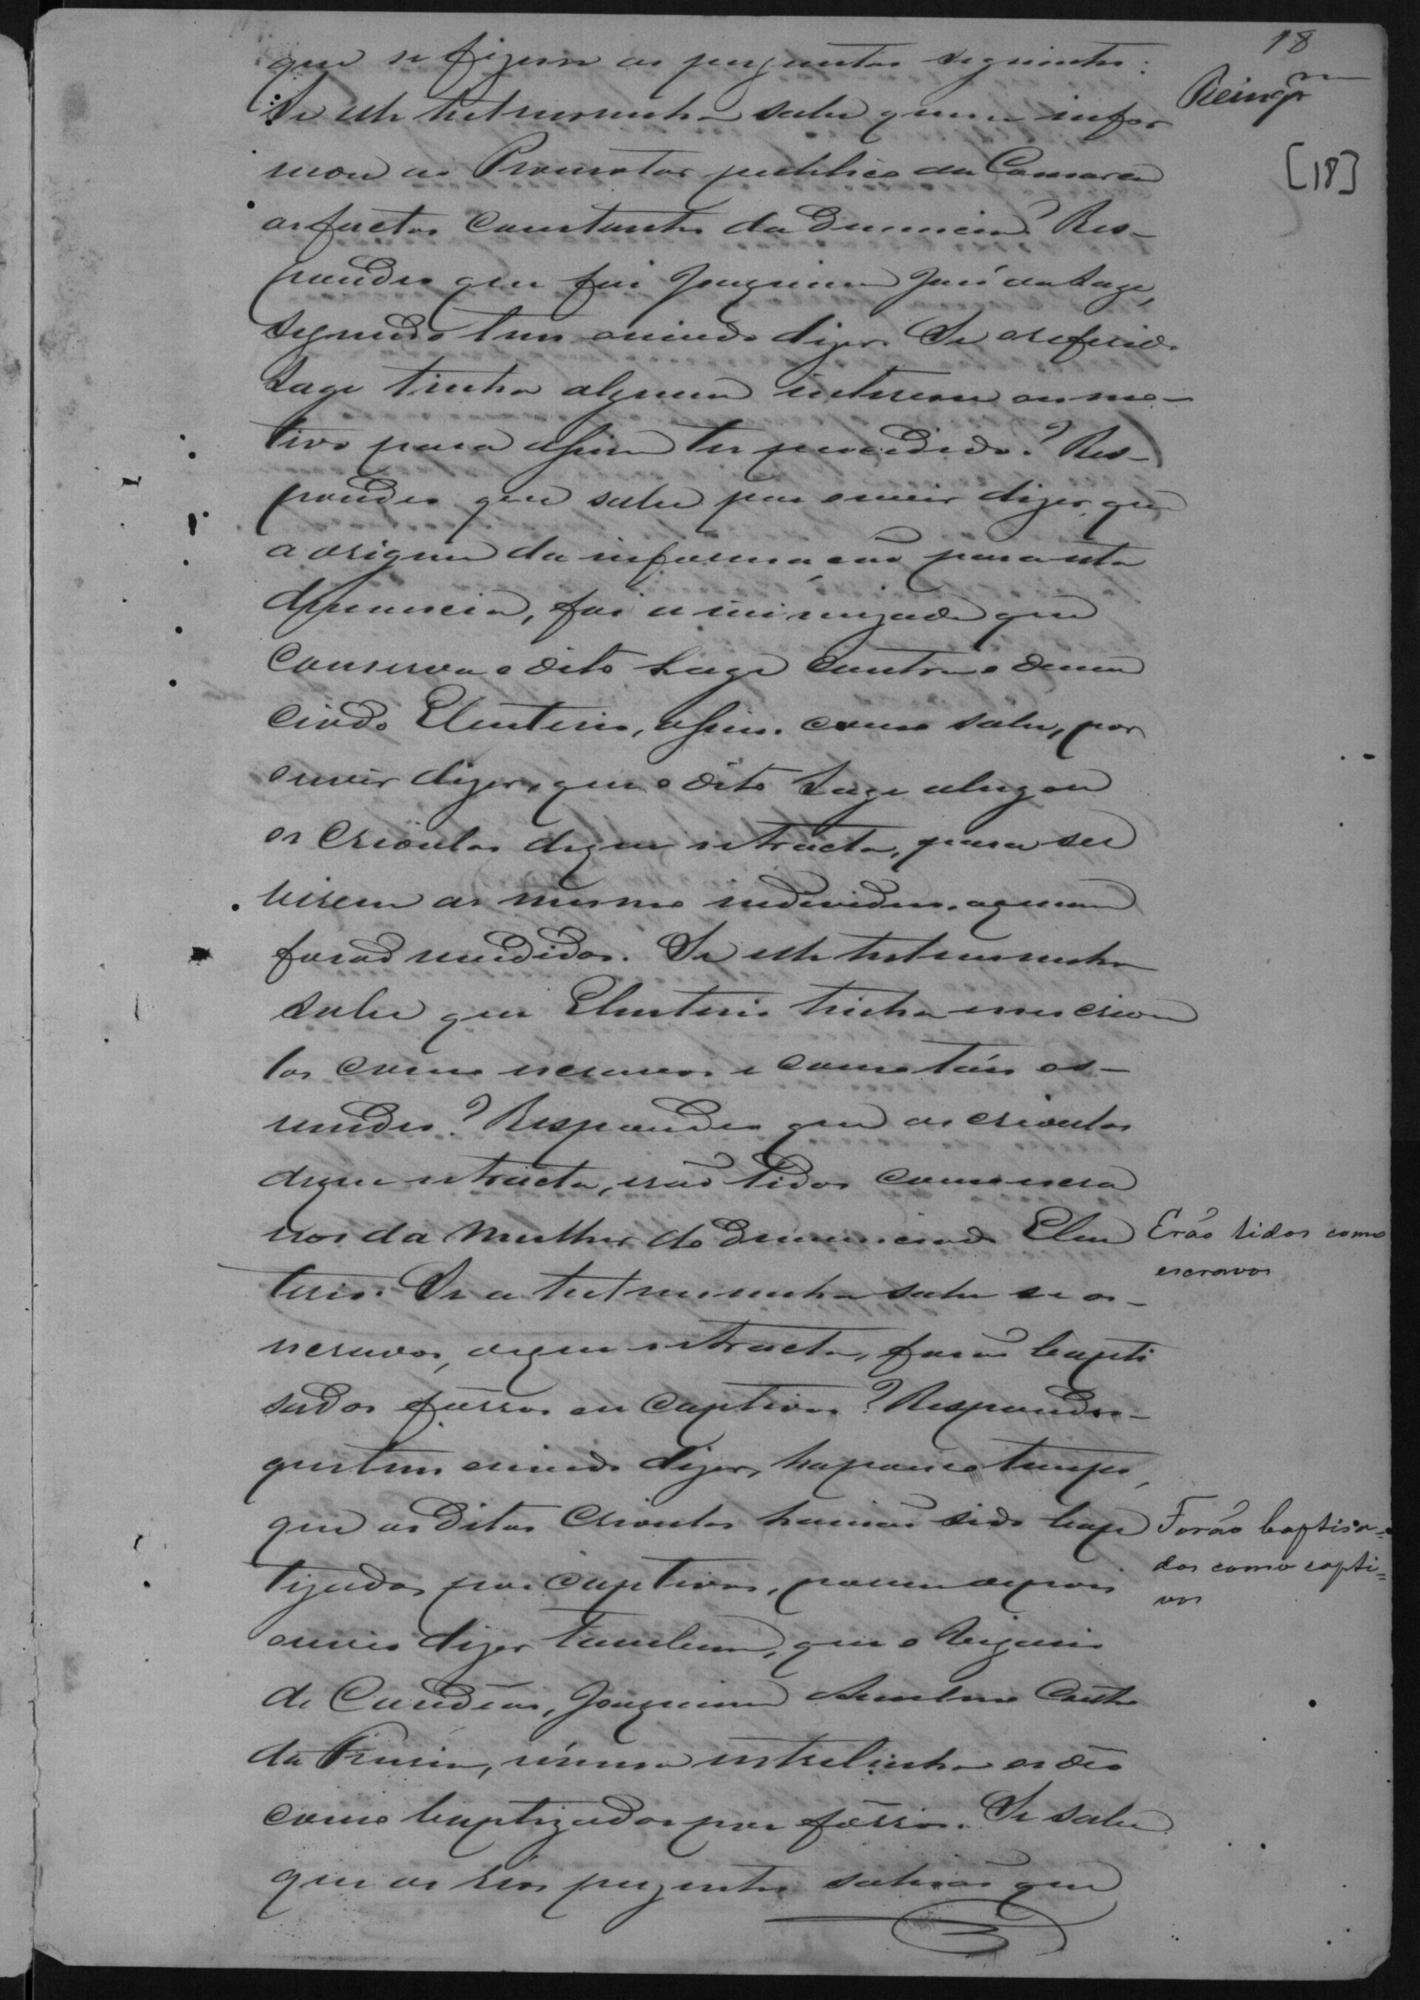 18
[18]
que se fizerão as perguntas seguintes:
Se elle testemunha sabe quem infor
mou ao Promotor publico da Comarca
os factos constantes da Denuncia? Res-
pondeo que foi Joaquim José da Lage,
segundo tem ouvido dizer. Se o referido
Lage tinha algum interesse ou mo-
tivo para assim ter procedido? Res-
pondeo que sabe por ouvir dizer, que
a origem da informação para esta
denuncia, foi a inimizade que
conserva o dito Lage contra o denun
ciado Eleuterio, assim como sabe, por
ouvir dizer, que o dito Lage alugou
os crioulos de que se tracta, para ser
virem ao mesmo individuo, a quem
forão vendidos. Se elle testemunha
sabe que Eleuterio tinha esses criou
los como escravos e como táes os
vendeo? Respondeo que os crioulos
de que se tracta, erão tidos como escra
vos da mulher do Denunciado Eleu
terio. Se a testemunha sabe se os
escravos, de que se tracta, forão bapti
sados fôrros ou captivos? Respondeo
que tem ouvido dizer, ha pouco tempo,
que os ditos crioulos havião sido bap
tizados por captivos, porem depois
ouvio dizer tambem, que o Vigario
de Candêas, Joaquim Cunha
da, n'uma entrelinha os deo
como baptizados por fôrros. Se sabe
que os réos prezentes sabião que
Erão tidos como
escravos
Forão baptisa-
dos como capti=
vos